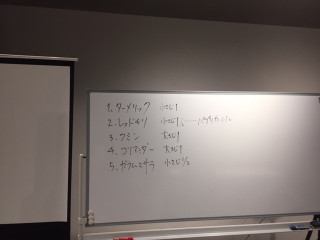 1. ターメリック 小さじ1
2. レッドチリ 小さじ1
3. クミン 大さじ1
4. コリアンダー 大さじ1
5. ガラムマサラ 小さじ1/2